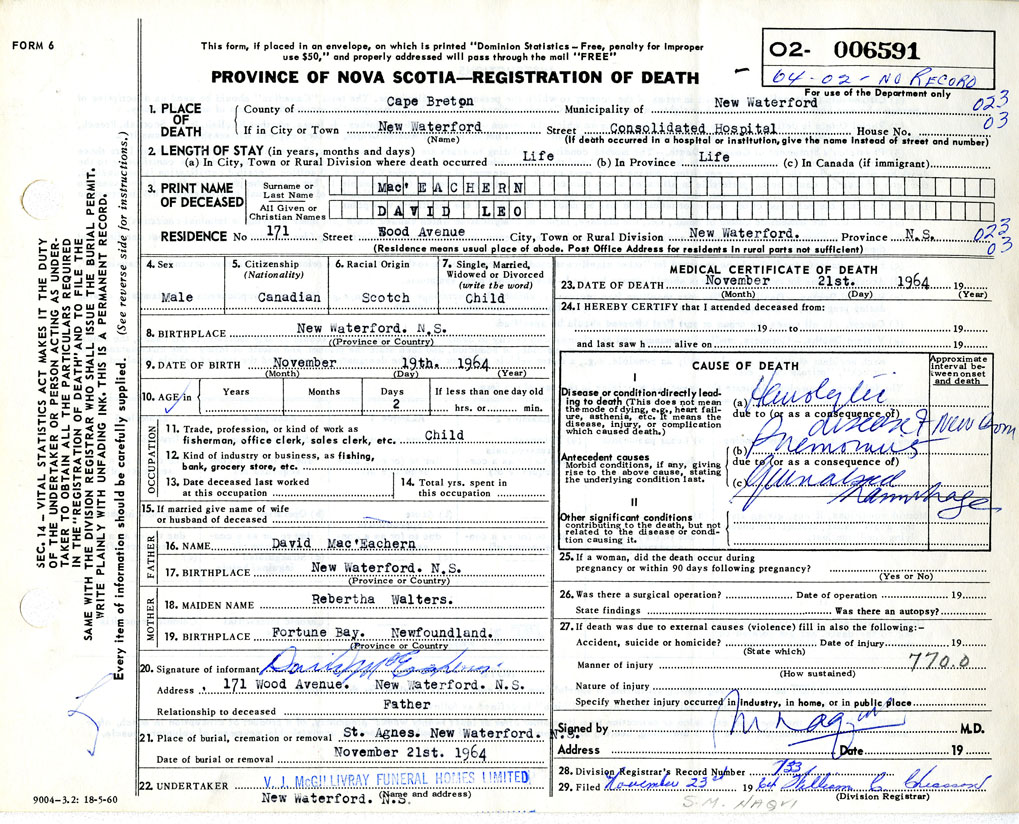 FORM 6
This form, if placed in an envelope, on which is printed "Dominion Statistics – Free, penalty for improper
use $50," and properly addressed will pass through the mail "FREE"
PROVINCE OF NOVA SCOTIA—REGISTRATION OF DEATH
02- 006591
64-02-NO RECORD
For use of the Department only
023
03
1. PLACE OF DEATH
County of Cape Breton Municipality of New Waterford
If in City or Town New Waterford Street Consolidated Hospital House No.
(Name) (If death occurred in a hospital or institution, give the name instead of street and number)
2. LENGTH OF STAY (in years, months and days)
(a) In City, Town or Rural Division where death occurred Life (b) In Province Life (c) In Canada (if immigrant)
3. PRINT NAME OF DECEASED
Surname or Last Name Mac' EACHERN
All Given or Christian Names DAVID LEO
RESIDENCE No 171 Street Wood Avenue City, Town or Rural Division New Waterford. Province N.S.
(Residence means usual place of abode. Post Office Address for residents in rural parts not sufficient)
023
03
4. Sex Male
5. Citizenship (Nationality) Canadian
6. Racial Origin Scotch
7. Single, Married, Widowed or Divorced (write the word) Child
8. BIRTHPLACE New Waterford. N.S.
((Province or Country)
9. DATE OF BIRTH November 19th. 1964
(Month) (Day) (Year)
10. AGE in Years Months Days 2 If less than one day old hrs. or min.
OCCUPATION
11. Trade, profession, or kind of work as fisherman, office clerk, sales clerk, etc. Child
12. Kind of industry or business, as fishing, bank, grocery store, etc.
13. Date deceased last worked at this occupation
14. Total yrs. spent in this occupation
15. If married give name of wife or husband of deceased
FATHER
16. NAME David Mac'Eachern
17. BIRTHPLACE New Waterford. N.S.
(Province or Country)
MOTHER
18. MAIDEN NAME Rebertha Walters.
19. BIRTHPLACE Fortune Bay. Newfoundland.
(Province or Country
20. Signature of informant David McEachern
Address 171 Wood Avenue. New Waterford. N.S.
Relationship to deceased Father
21. Place of burial, cremation or removal St. Agnes. New Waterford. N.S.
Date of burial or removal November 21st. 1964
22. UNDERTAKER V. J. McGILLIVRAY FUNERAL HOMES LIMITED
New Waterford. N.S.
(Name and address)
MEDICAL CERTIFICATE OF DEATH
23. DATE OF DEATH November 21st. 1964 19
(Month) (Day) (Year)
24. I HEREBY CERTIFY that I attended deceased from:
19 to 19
and last saw h alive on 19
CAUSE OF DEATH
Approximate Interval between onset and death
I
Disease or condition directly leading to death (This does not mean the mode of dying, e.g., heart failure, asthenia, etc. It means the disease, injury, or complication which caused death.)
(a) Hemolytic
due to (or as a consequence of)
disease of Newborn
Antecedent causes
Morbid conditions, if any, giving rise to the above cause, stating the underlying condition last.
(b)
due to (or as a consequence of)
(c)
II
Other significant conditions
contributing to the death, but not related to the disease or condition causing it.
25. If a woman, did the death occur during
pregnancy or within 90 days following pregnancy?
(Yes or No)
26. Was there a surgical operation? Date of operation 19
State findings Was there an autopsy?
27. If death was due to external causes (violence) fill in also the following:–
Accident, suicide or homicide? Date of injury 19
(State which)
Manner of injury 770.0
(How sustained)
Nature of injury
Specify whether injury occurred in industry, in home, or in public place
Signed by M.D.
Address Date 19
28. Division Registrar's Record Number 733
29. Filed November 23rd 1964 William C Chiasson
(Division Registrar)
S.M. NAQVI
9004-3.2: 18-5-60
SEC. 14 – VITAL STATISTICS ACT MAKES IT THE DUTY
OF THE UNDERTAKER OR PERSON ACTING AS UNDER-
TAKER TO OBTAIN ALL THE PARTICULARS REQUIRED
IN THE "REGISTRATION OF DEATH" AND TO FILE THE
SAME WITH THE DIVISION REGISTRAR WHO SHALL ISSUE THE BURIAL PERMIT.
WRITE PLAINLY WITH UNFADING INK. THIS IS A PERMANENT RECORD.
Every item of information should be carefully supplied. (See reverse side for instructions.)